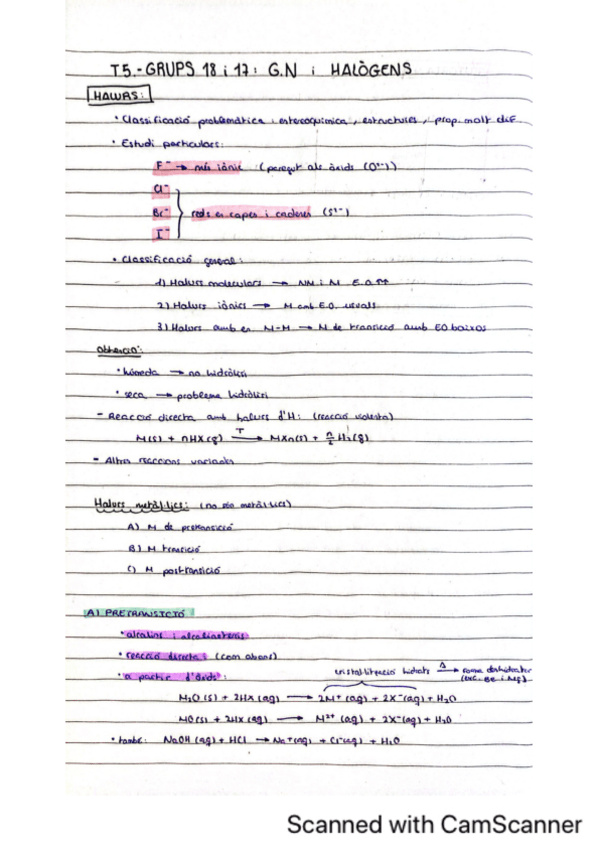 T.5.- GRUPS 18 i 17: G.N i HALÒGENS
HALURS:
· Classificació problemàtica: estereoquímica, estructures, prop. molt dif.
· Estudi particulars:
F⁻ → més iònic (paregut als òxids (O²⁻))
Cl⁻
Br⁻ } reds en capes i cadenes (S²⁻)
I⁻
· Classificació general:
1) Halurs moleculars → NM i M E.O ↑↑
2) Halurs iònics → M amb E.O. usuals
3) Halurs amb en M-M → M de transició amb EO baixos
Obtenció:
· humeda → no hidròlisi
· seca → problema hidròlisi
- Reacció directa amb halurs d'H: (reacció violenta)
M(s) + nHX(g) —T→ MXn(s) + n/2 H₂(g)
- Altres reaccions variades
Halurs metàl·lics: (no són metàl·lics)
A) M de pretransició
B) M transició
C) M postransició
A) PRETRANSICIÓ
· alcalins i alcalinoterris
· reacció directa: (com abans)
· a partir d'òxids:
cristal·lització hidrats —Δ→ forma deshidratar (exc. Be i Mg)
M₂O(s) + 2HX(aq) → 2M⁺(aq) + 2X⁻(aq) + H₂O
MO(s) + 2HX(aq) → M²⁺(aq) + 2X⁻(aq) + H₂O
· també: NaOH(aq) + HCl → Na⁺(aq) + Cl⁻(aq) + H₂O
Scanned with CamScanner